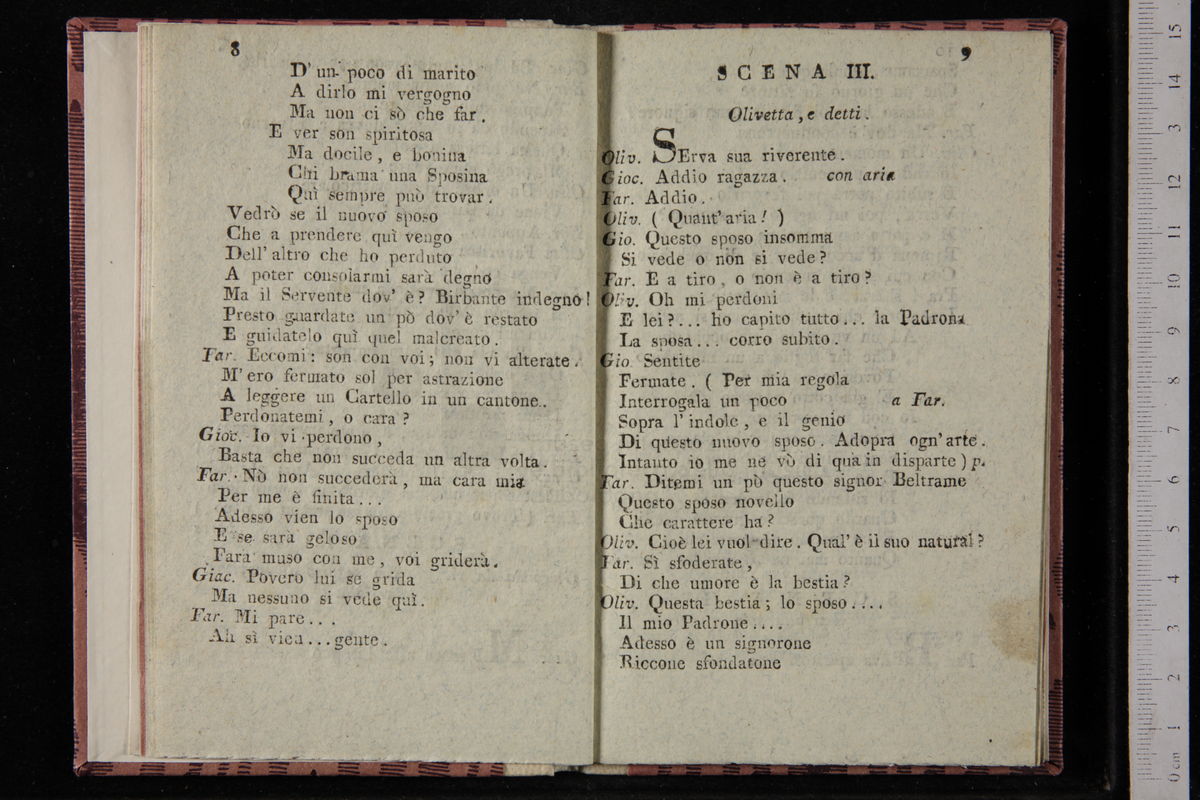 8
D' un poco di marito
A dirlo mi vergogno
Ma non ci sò che far.
E ver son spiritosa
Ma docile, e bonina
Chi brama una Sposina
Quì sempre può trovar.
Vedrò se il nuovo sposo
Che a prendere quì vengo
Dell' altro che ho perduto
A poter consolarmi sarà degno
Ma il Servente dov' è? Birbante indegno!
Presto guardate un pò dov' è restato
E guidatelo quì quel malcreato.
Far. Eccomi: son con voi; non vi alterate.
M' ero fermato sol per astrazione
A leggere un Cartello in un cantone..
Perdonatemi, o cara?
Gioc. Io vi perdono,
Basta che non succeda un altra volta.
Far. Nò non succederà, ma cara mia
Per me è finita...
Adesso vien lo sposo
E se sara geloso
Fara muso con me, voi griderà.
Giac. Povero lui se grida
Ma nessuno si vede quì.
Far. Mi pare...
Ah sì vien...gente.
9
SCENA III.
Olivetta, e detti.
Oliv. SErva sua riverente.
Gioc. Addio ragazza. con aria
Far. Addio.
Oliv. ( Quant' aria! )
Gio. Questo sposo insomma
Si vede o non si vede?
Far. E a tiro, o non è a tiro?
Oliv. Oh mi perdoni
E lei?... ho capito tutto... la Padrona
La sposa... corro subito.
Gio. Sentite
Fermate. ( Per mia regola
Interrogala un poco a Far.
Sopra l' indole, e il genio
Di questo nuovo sposo. Adopra ogn' arte.
Intanto io me ne vò di qua in disparte ) p.
Far. Ditemi un pò questo signor Beltrame
Questo sposo novello
Che carattere ha?
Oliv. Cioè lei vuol dire. Qual' è il suo natural?
Far. Sì sfoderate,
Di che umore è la bestia?
Oliv. Questa bestia; lo sposo....
Il mio Padrone....
Adesso è un signorone
Riccone sfondatone
0 cm 1 2 3 4 5 6 7 8 9 10 11 12 13 14 15